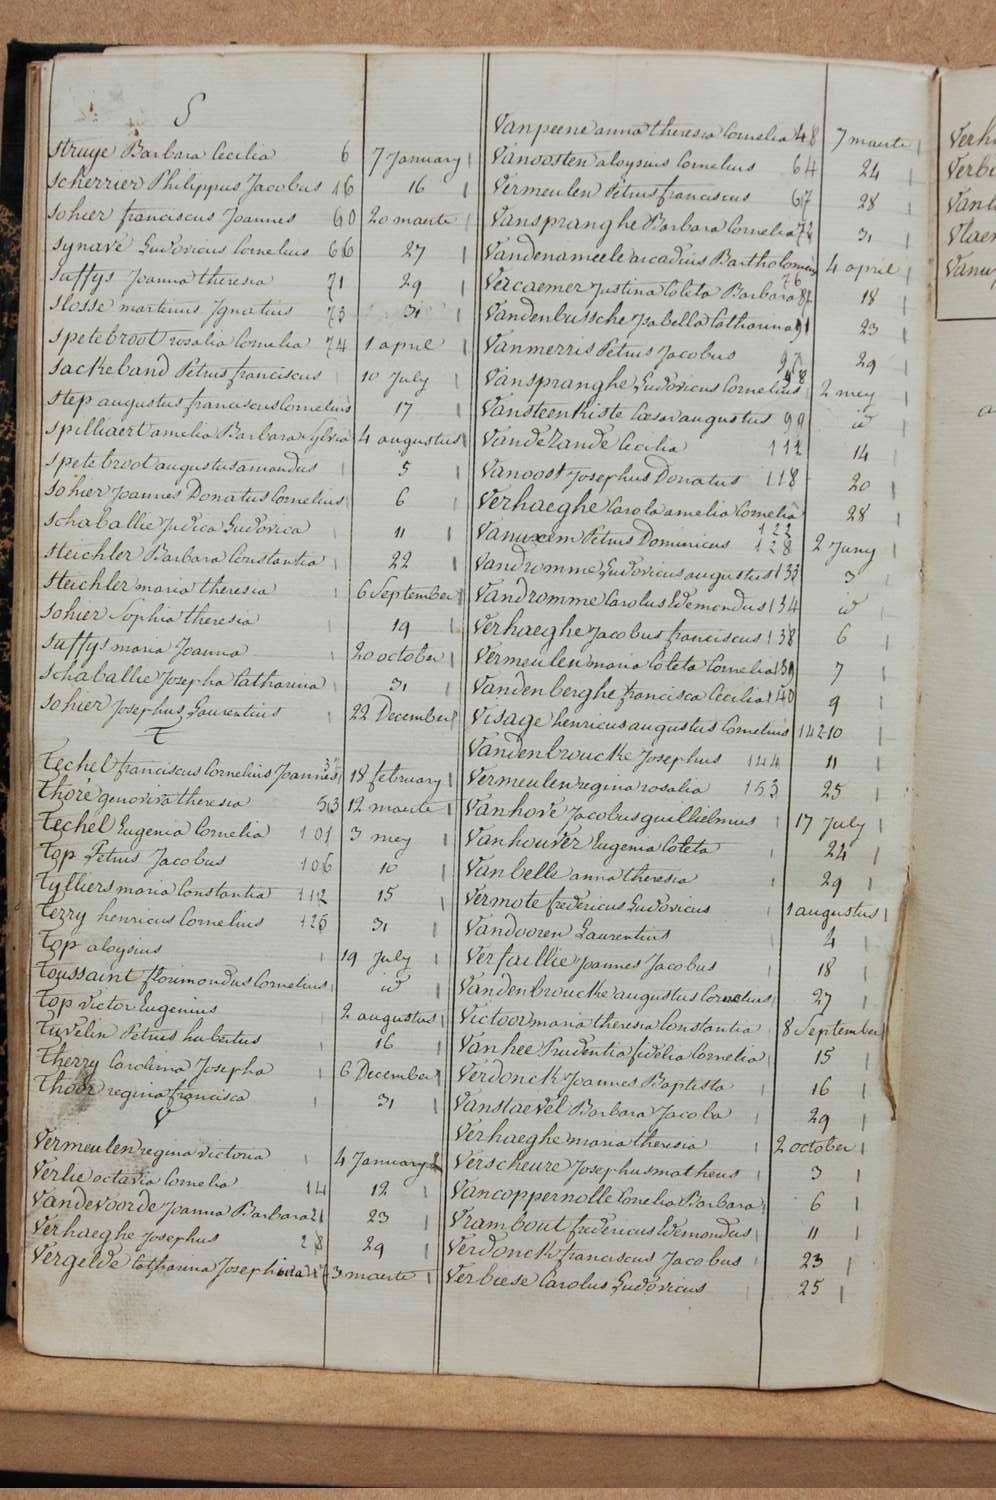 S
Struye Barbara Cecilia 6 7 January
Scherrier Philippus Jacobus 16 16
Sohier franciscus Joannes 60 20 maarte
Synave Ludovicus Cornelius 66 27
Suffys Joanna theresia 71 29
Slosse martinus Ignatius 73 31
Spetebroot rosalia Cornelia 74 1 april
Sackeband Petrus franciscus 10 July
Step augustus franciscus Cornelius 17
Spilliaert amelia Barbara Sylvia 4 augustus
Spetebroot augustus amandus 5
Sohier Joannes Donatus Cornelius 6
Schaballie Judica Ludovica 11
Steichler Barbara Constantia 22
Steichler maria theresia 6 September
Sohier Sophia theresia 19
Suffys maria Joanna 20 october
Schaballie Josepha Catharina 31
Sohier Josephus Laurentius 22 December
T
Techel franciscus Cornelius Joannes 37 18 february
Thoré genoviva theresia 53 12 maarte
Techel Eugenia Cornelia 101 3 mey
Top Petrus Jacobus 106 10
Tylliers maria Constantia 112 15
Terry henricus Cornelius 126 31
Top aloysius 19 July
Toussaint florimondus Cornelius id
Top victor Eugenius 2 augustus
Tuvelin Petrus hubertus 16
Therry Carolina Josepha 6 December
Thoor regina francisca 31
V
Vermeulen regina victoria 4 January
Verlie octavia Cornelia 14 12
Vandevoorde Joanna Barbara 21 23
Verhaeghe Josephus 28 29
Vergelde Catharina Josephina 3 maarte
Vanpeene anna theresia Cornelia 48 7 maarte
Vanoosten aloysius Cornelius 64 24
Vermeulen Petrus franciscus 67 28
Vanspranghe Barbara Cornelia 72 31
Vandenameele arcadius Bartholomeus 76 4 april
Vercaemer Justina Coleta Barbara 87 18
Vandenbussche Isabella Catharina 91 23
Vanmerris Petrus Jacobus 97 29
Vanspranghe Ludovicus Cornelius 98 2 mey
Vansteenkiste Caesar augustus 99 id
Vandezande Cecilia 111 14
Vanoost Josephus Donatus 118 20
Verhaeghe Carola amelia Cornelia 122 28
Vanuxem Petrus Dominicus 128 2 Juny
Vandromme Ludovicus augustus 133 3
Vandromme Carolus Edemondus 134 id
Verhaeghe Jacobus franciscus 138 6
Vermeulen maria Coleta Cornelia 139 7
Vandenberghe francisca Cecilia 140 9
Visage henricus augustus Cornelius 142 10
Vandenbroucke Josephus 144 11
Vermeulen regina rosalia 153 25
Vanhove Jacobus guillielmus 17 July
Vanhouver Eugenia Coleta 24
Vanbelle anna theresia 29
Vermote fredericus Ludovicus 1 augustus
Vandooren Laurentius 4
Verfaillie Joannes Jacobus 18
Vandenbroucke augustus Cornelius 27
Victoor maria theresia Constantia 8 September
Vanhee Prudentia fidelia Cornelia 15
Verdonck Joannes Baptista 16
Vanstaevel Barbara Jacoba 29
Verhaeghe maria theresia 2 october
Verscheure Josephus matheus 3
Vancoppernolle Cornelia Barbara 6
Vrambout fredericus Edemondus 11
Verdonck franciscus Jacobus 23
Verbeese Carolus Ludovicus 25